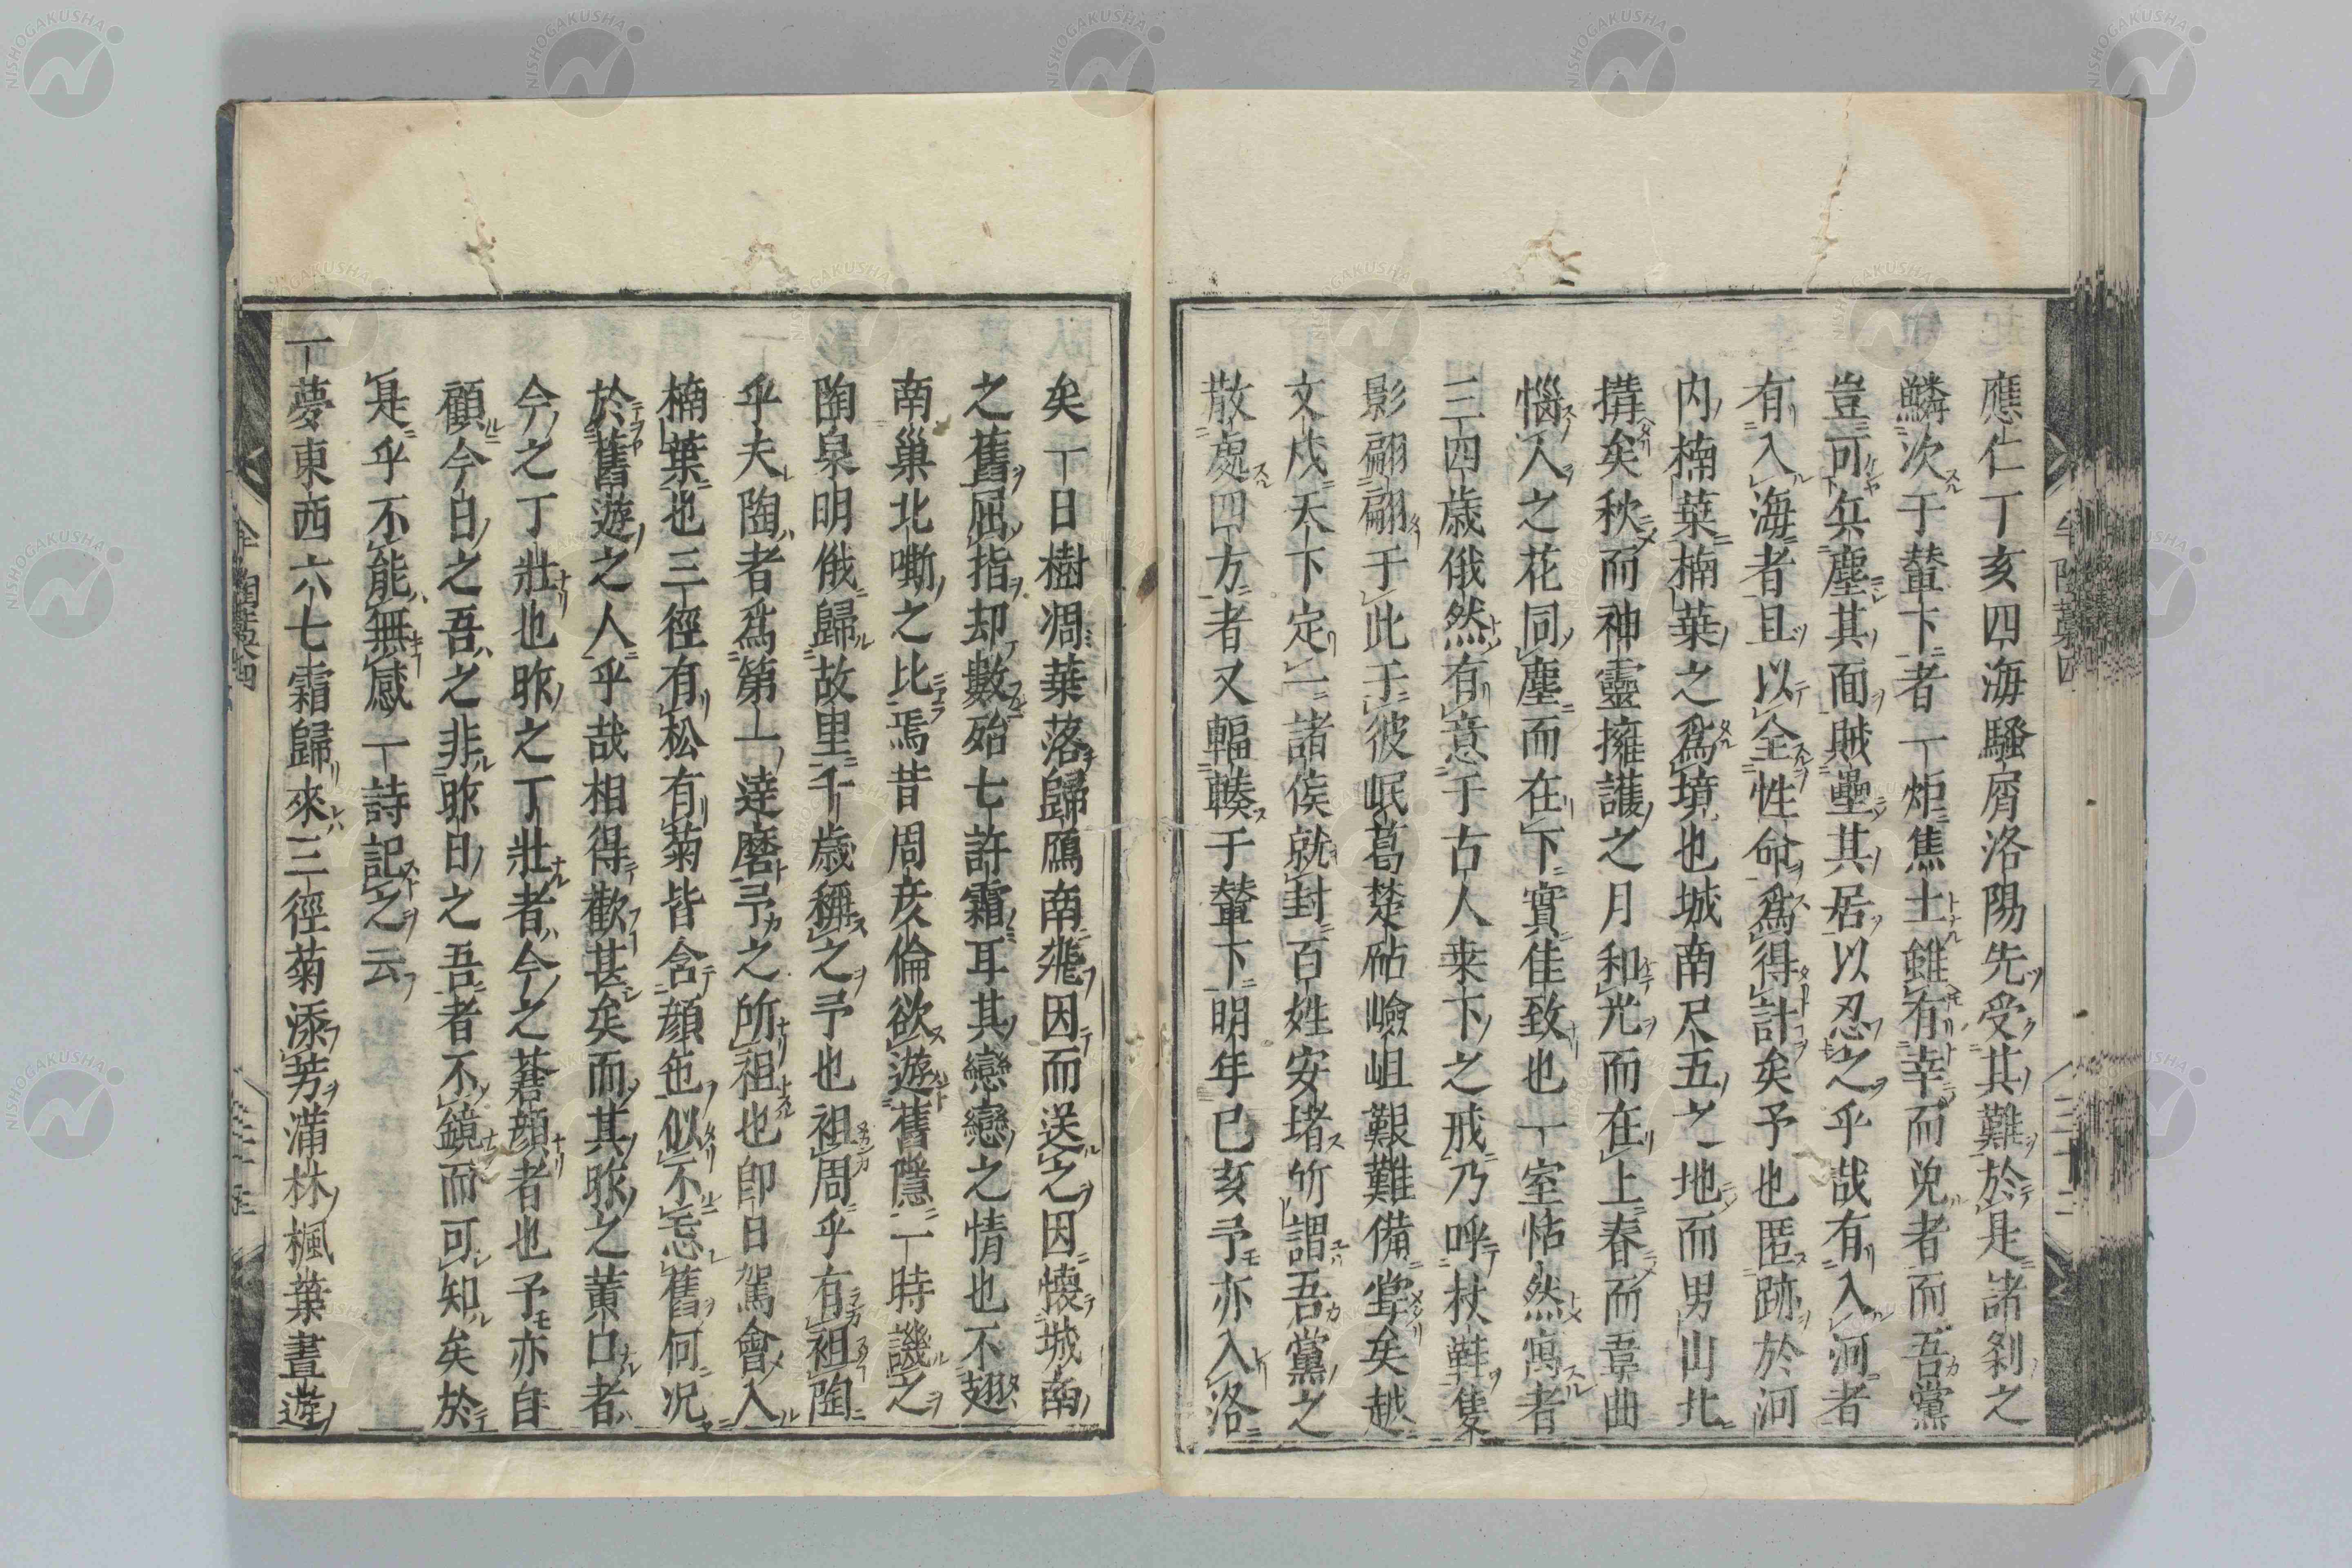 應仁丁亥四海騷屑洛陽先受其難於是諸刹之
鱗次于輦下者一炬焦土雖有幸而免者而吾黨
豈可兵塵其面賊壘其居以忍之乎哉有入河者
有入海者且以全性命爲得計矣予也匿跡於河
内楠葉楠葉之爲墳也城南尺五之地而男山北
搆矣秋而神靈擁護之月和光而在上春而韋曲
惱人之花同塵而在下實佳致也一室恬然寓者
三四歳俄然有意于古人桒下之戒乃呼杖鞋隻
影翩翩于此于彼岷葛楚砧嶮岨艱難備甞矣越
文戍天下定一諸侯就封百姓安堵所謂吾黨之
散處四方者又輻輳于輦下明年已亥予亦入洛
矣一日樹凋葉落歸鴈南飛因而送之因懐城南
之舊屈指却數殆七許霜耳其戀戀之情也不翅
南巢北嘶之比焉昔周彦倫欲遊舊隱一時譏之
陶泉明俄歸故里千歳稱之予也袒周乎有袒陶
乎夫陶者爲第一達磨予之所祖也即日駕會入
楠葉也三徑有松有菊皆含顔色似不忘舊何况
於舊遊之人乎哉相得歡甚矣而其昨之黄口者
今之丁壯也昨之丁壯者今之蒼顔者也予亦自
顧今日之吾之非昨日之吾者不鏡而可知矣於
是乎不能無感一詩記之云
一夢東西六七霜歸來三徑菊添芳滿林楓葉晝遊